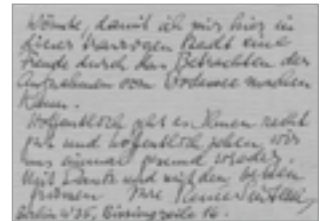 könnte, damit ich mir hier in
dieser traurigen Stadt eine
Freude durch das Betrachten der
Aufnahmen vom Bodensee machen
kann.
Hoffentlich geht es Ihnen recht
gut und hoffentlich sehen wir
uns einmal gesund wieder.
Mit Dank und mit den besten
Grüssen Ihre Renée Sintenis
Berlin W 35, Bissingzeile 16.